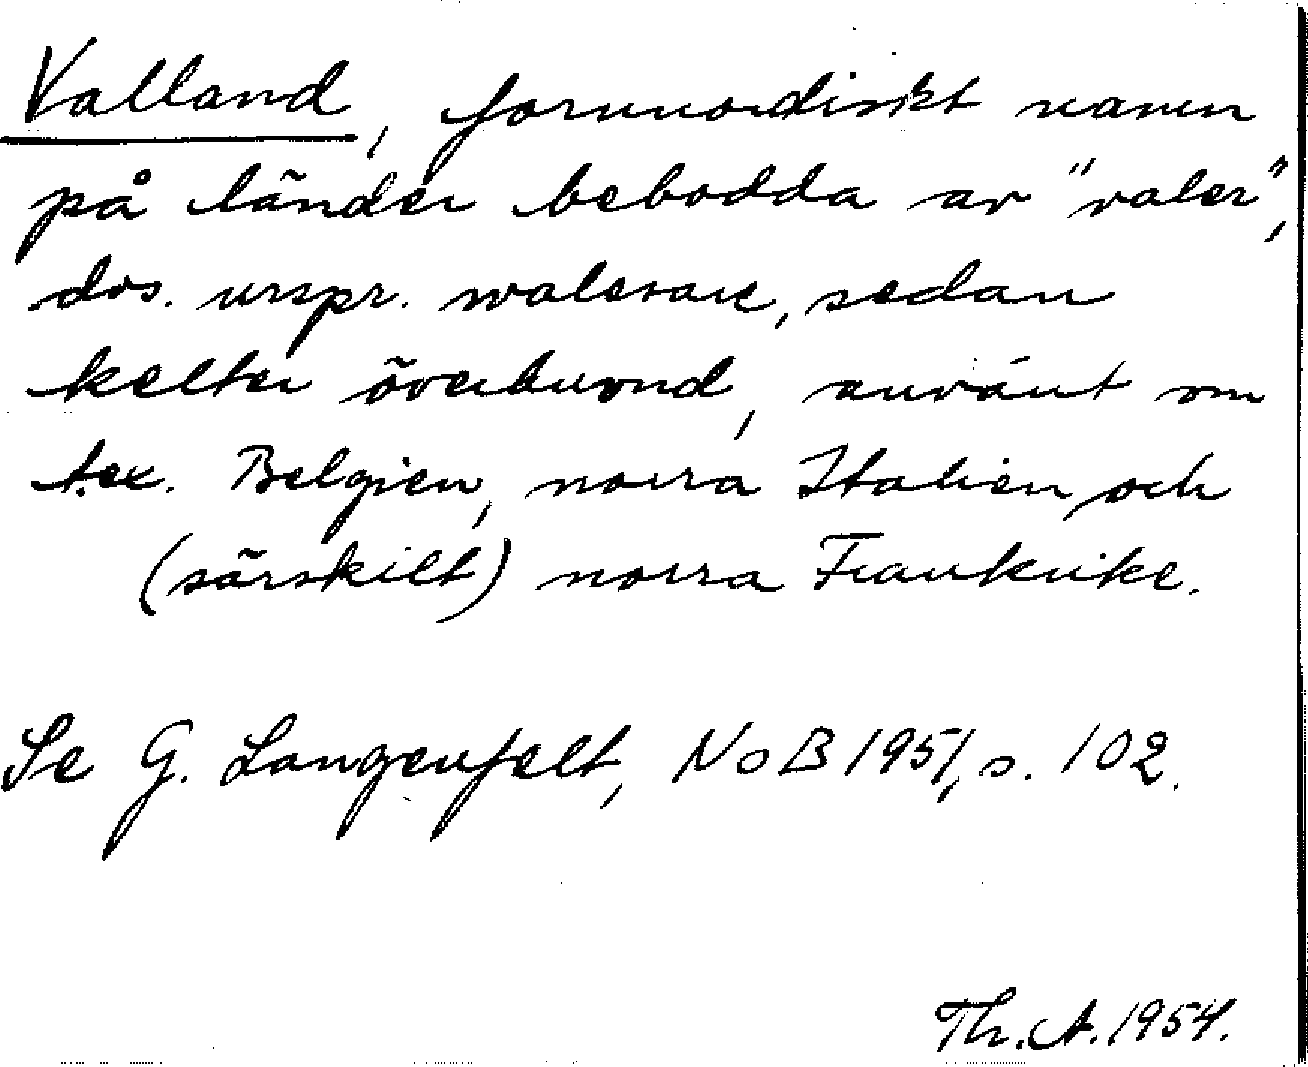 Valland, fornnordiskt namn
på länder bebodda av "valer",
dvs. urspr. walesare, sedan
kelter överhuvud, använt om
t.ex. Belgien, norra Italien och
(särskilt) norra Frankrike.
Se G. Langenfelt, NoB 1951, s. 102.
Th. A. 1954.